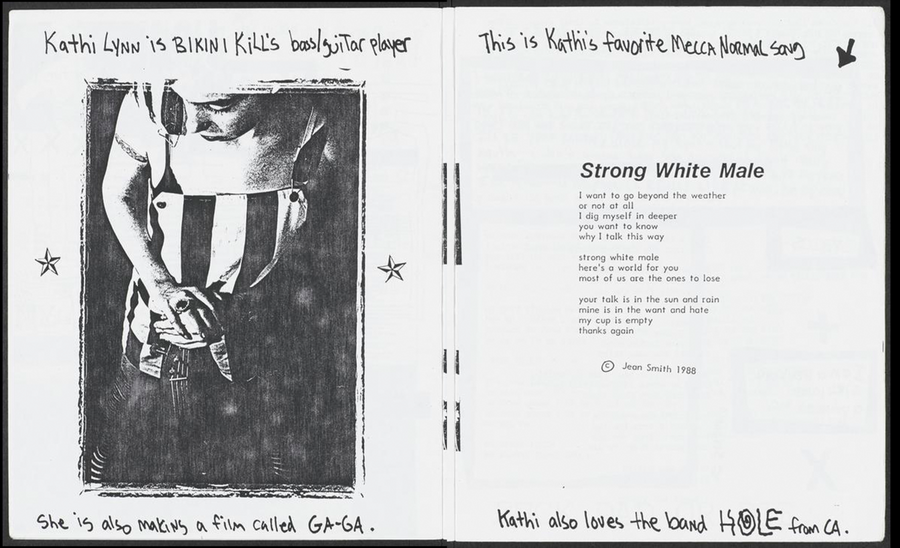 Kathi Lynn is BIKINI KiLL's bass/guiTar player
She is also making a film called GA-GA.
This is Kathi's favorite Mecca Normal song
Strong White Male
I want to go beyond the weather
or not at all
I dig myself in deeper
you want to know
why I talk this way
strong white male
here's a world for you
most of us are the ones to lose
your talk is in the sun and rain
mine is in the want and hate
my cup is empty
thanks again
© Jean Smith 1988
Kathi also loves the band HOLE from CA.